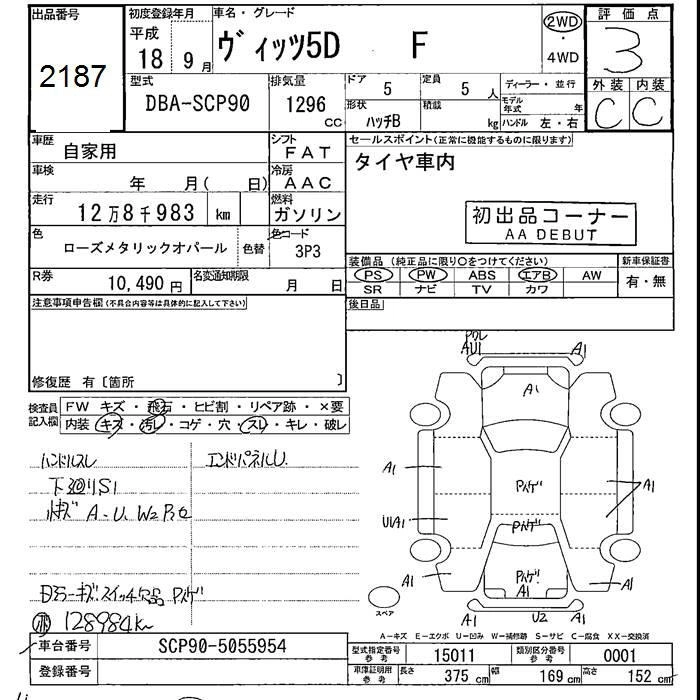 出品番号
2187
初度登録年月
平成
18 9月
車名・グレード
ヴィッツ5D F
2WD
・
4WD
評価点
3
外装 内装
C C
型式
DBA-SCP90
排気量
1296 CC
ドア 5
定員 5 人
形状 ハッチB
積載 kg
ディーラー・並行
モデル年式 年
ハンドル 左・右
車歴 自家用
シフト FAT
車検 年 月( 日)
冷房 AAC
走行 12万8千983 km
燃料 ガソリン
色 ローズメタリックオパール 色替
色コード 3P3
R券 10,490円
名変通知期限 月 日
セールスポイント(正常に機能するものに限ります)
タイヤ車内
初出品コーナー
AA DEBUT
装備品(純正品に限り○をつけてください)
PS PW ABS エアB AW
SR ナビ TV カワ
新車保証書
有・無
後日品
注意事項申告欄(不具合内容等は具体的に記入して下さい)
修復歴 有〔箇所 〕
検査員記入欄
FW キズ・飛石・ヒビ割・リペア跡・×要
内装 キズ・汚レ・コゲ・穴・スレ・キレ・破レ
ハンドルスレ
エンドパネルU
下廻りS1
A-U. W2
128984km
AU1 A1
A1
A1
A1
U1A1
A1
A1
A1
A1 U2 A1
スペア
A-キズ E-エクボ U-凹み W-補修跡 S-サビ C-腐食 XX-交換済
車台番号 SCP90-5055954
登録番号
型式指定番号参考 15011
類別区分番号参考 0001
車庫証明用参考 長さ 375cm 幅 169cm 高さ 152cm